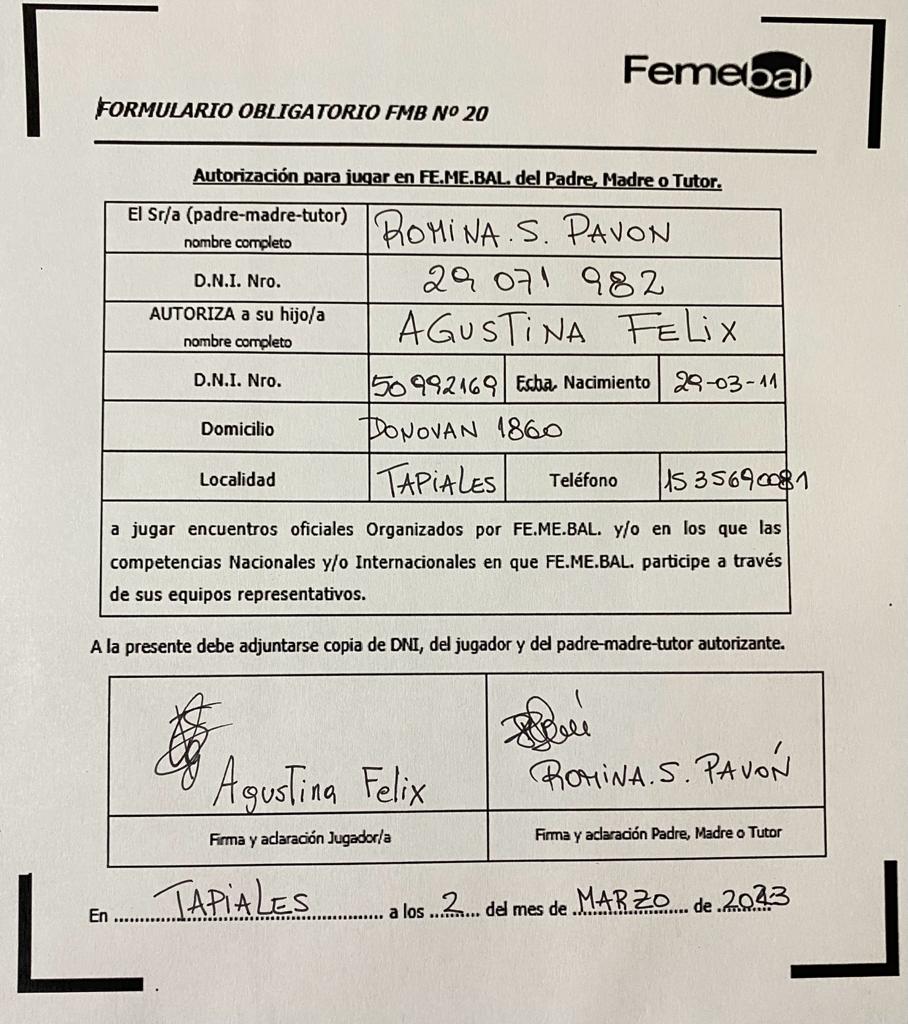 Femebal
FORMULARIO OBLIGATORIO FMB Nº 20
Autorización para jugar en FE.ME.BAL. del Padre, Madre o Tutor.
El Sr/a (padre-madre-tutor) nombre completo ROMINA. S. PAVON
D.N.I. Nro. 29 071 982
AUTORIZA a su hijo/a nombre completo AGUSTINA FELIX
D.N.I. Nro. 50992169 Fcha. Nacimiento 29-03-11
Domicilio DONOVAN 1860
Localidad TAPIALES Teléfono 1535690081
a jugar encuentros oficiales Organizados por FE.ME.BAL. y/o en los que las
competencias Nacionales y/o Internacionales en que FE.ME.BAL. participe a través
de sus equipos representativos.
A la presente debe adjuntarse copia de DNI, del jugador y del padre-madre-tutor autorizante.
Agustina Felix
ROMINA. S. PAVÓN
Firma y aclaración Jugador/a
Firma y aclaración Padre, Madre o Tutor
En TAPIALES a los 2 del mes de MARZO de 2023